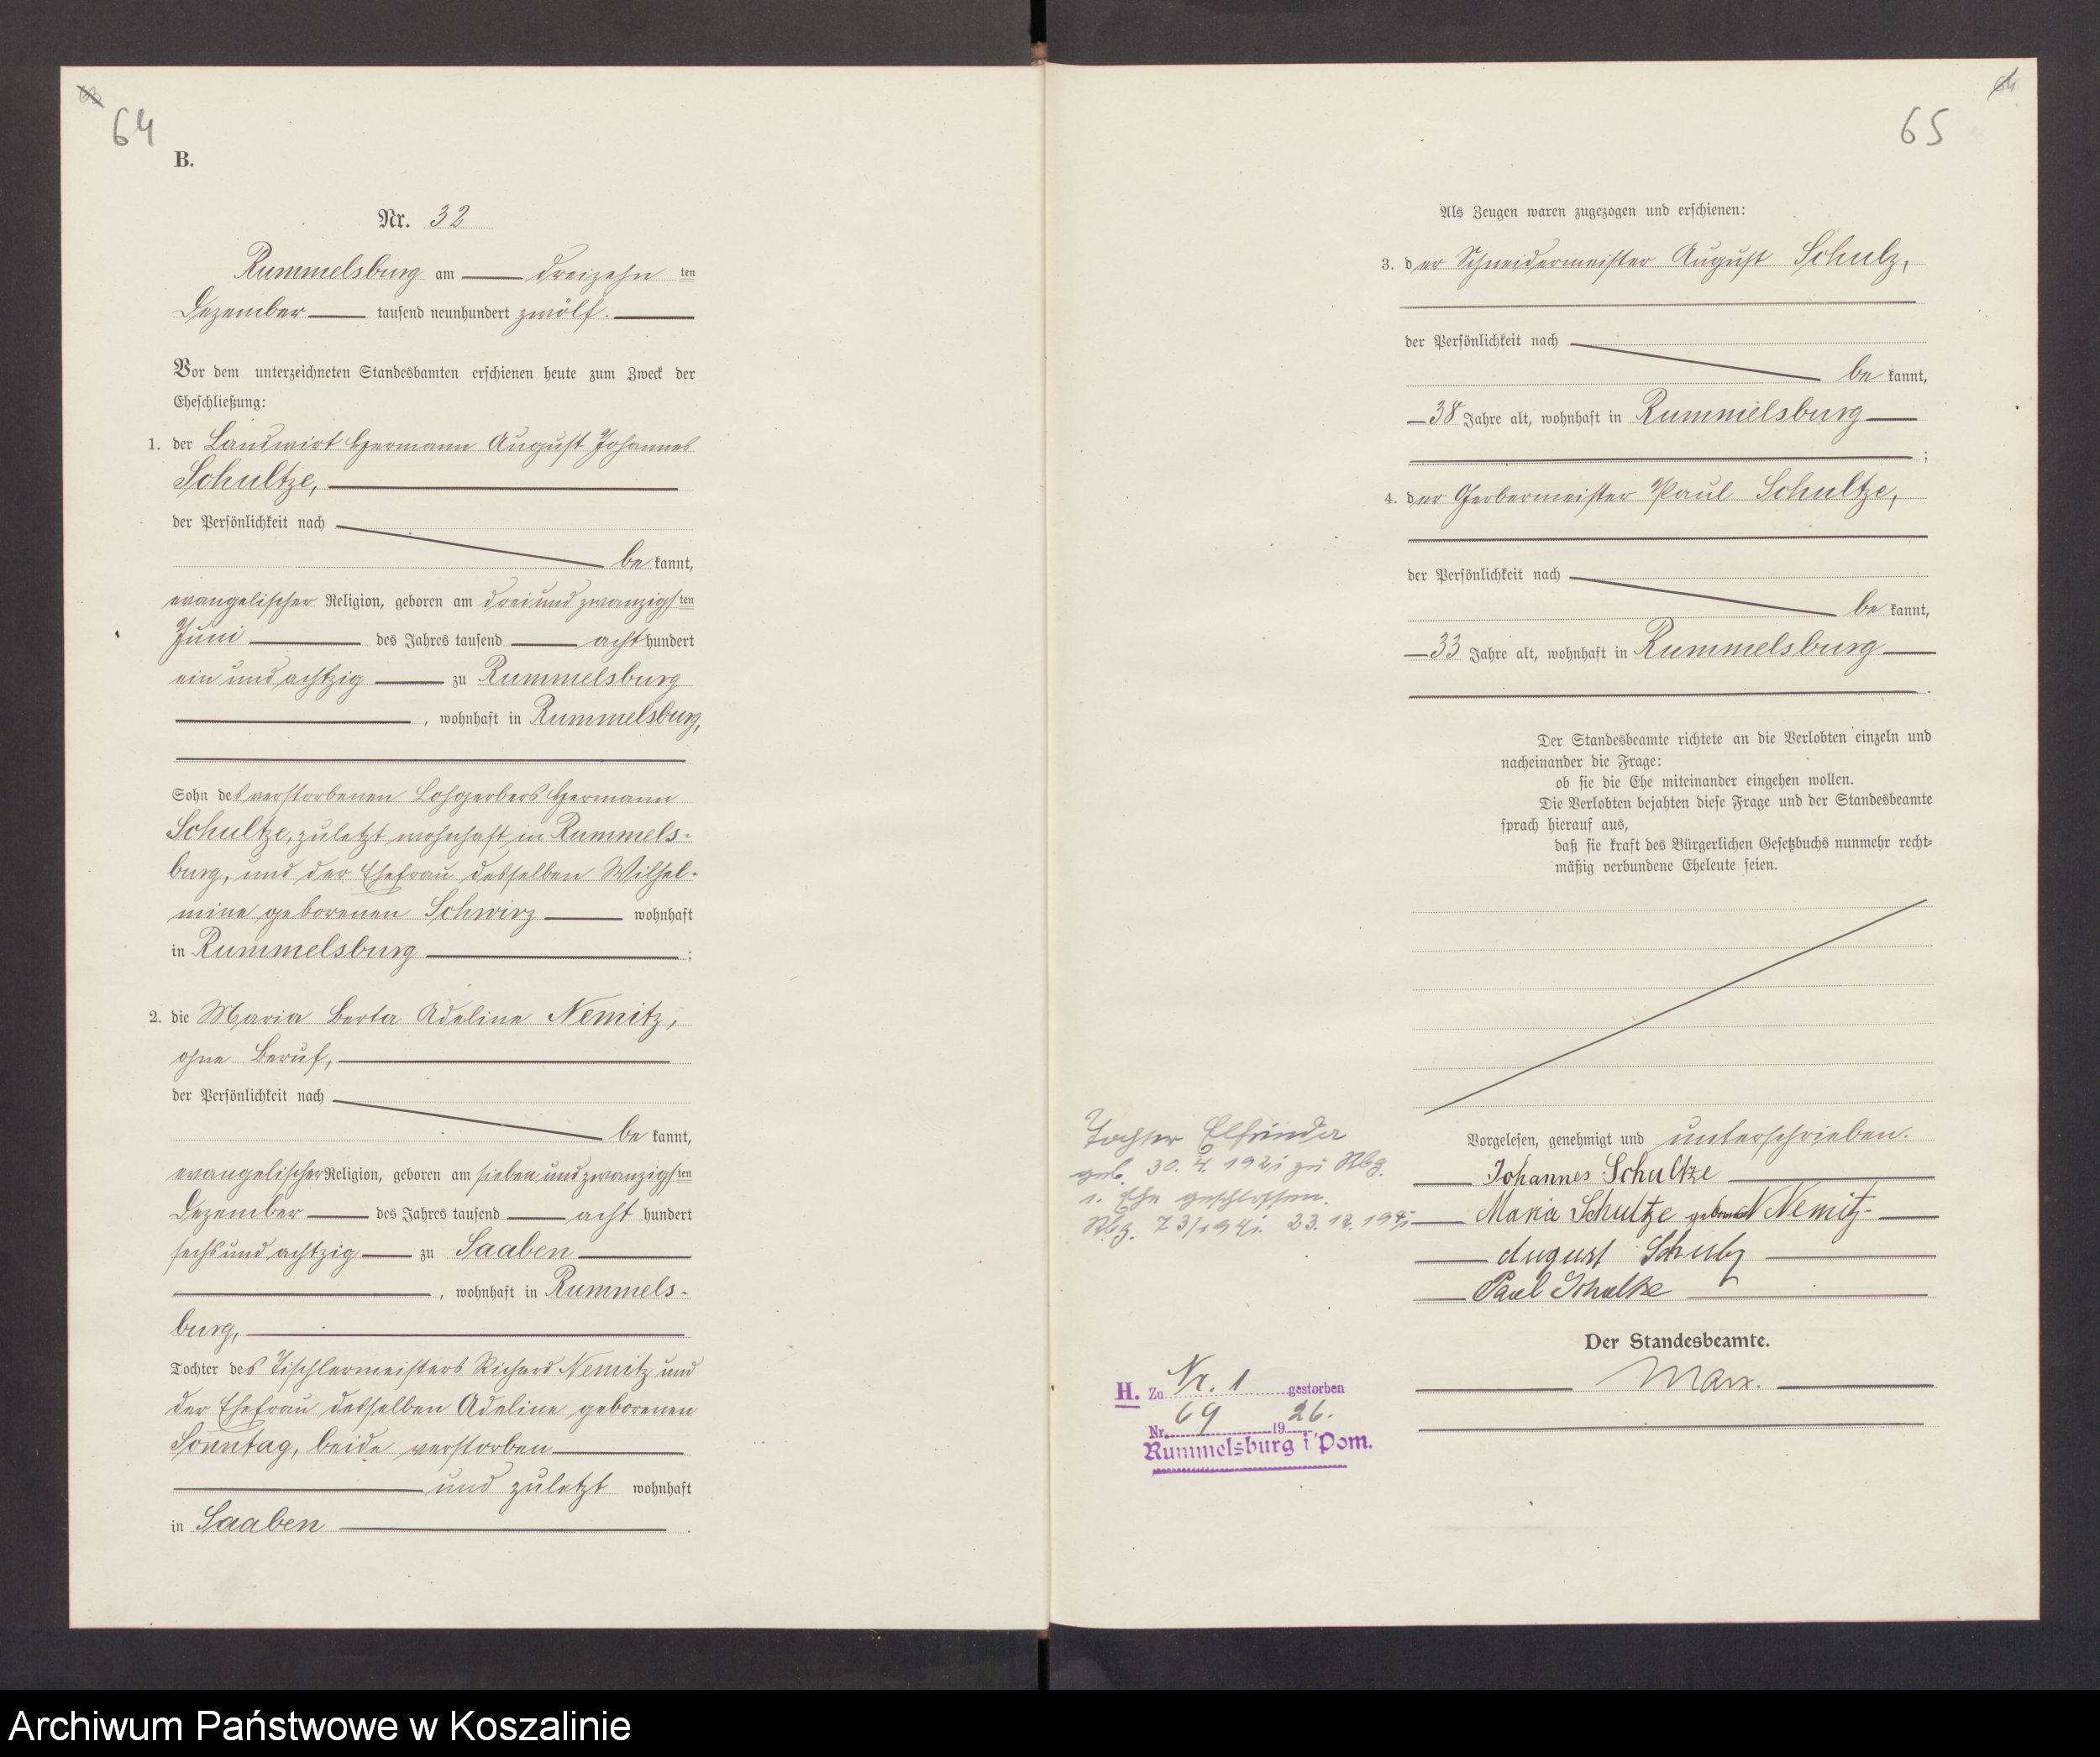 64
B.
Nr. 32
Rummelsburg am dreizehn ten
Dezember tausend neunhundert zwölf.
Vor dem unterzeichneten Standesbamten erschienen heute zum Zweck der
Eheschließung:
1. der Landwirt Hermann August Johannes
Schultze,
der Persönlichkeit nach
be kannt,
evangelischer Religion, geboren am dreiundzwanzigsten
Juni des Jahres tausend acht hundert
ein und achtzig zu Rummelsburg
, wohnhaft in Rummelsburg,
Sohn des verstorbenen Lohgerbers Hermann
Schultze, zuletzt wohnhaft in Rummels-
burg, und der Ehefrau desselben Wilhel-
mine geborenen Schwirz wohnhaft
in Rummelsburg ;
2. die Maria Berta Adeline Nemitz,
ohne Beruf,
der Persönlichkeit nach
be kannt,
evangelischer Religion, geboren am siebenundzwanzigsten
Dezember des Jahres tausend acht hundert
sechsundachtzig zu Saaben
, wohnhaft in Rummels-
burg,
Tochter des Tischlermeisters Richard Nemitz und
der Ehefrau desselben Adeline geborenen
Sonntag, beide verstorben
und zuletzt wohnhaft
in Saaben .
65
Als Zeugen waren zugezogen und erschienen:
3. der Schneidermeister August Schulz,
der Persönlichkeit nach
be kannt,
38 Jahre alt, wohnhaft in Rummelsburg
;
4. der Gerbermeister Paul Schultze,
der Persönlichkeit nach
be kannt,
33 Jahre alt, wohnhaft in Rummelsburg
.
Der Standesbeamte richtete an die Verlobten einzeln und
nacheinander die Frage:
ob sie die Ehe miteinander eingehen wollen.
Die Verlobten bejahten diese Frage und der Standesbeamte
sprach hierauf aus,
daß sie kraft des Bürgerlichen Gesetzbuchs nunmehr recht-
mäßig verbundene Eheleute seien.
Vorgelesen, genehmigt und unterschrieben.
Johannes Schultze
Maria Schultze geborne Nemitz
August Schulz
Paul Schultze
Der Standesbeamte.
Marx.
Tochter Elfrieda
geb. 30. 4. 1921 zu Rbg.
1. Ehe geschlossen.
Rbg. 73/1941. 23.12.1941
H. Zu Nr. 1 gestorben
Nr. 69 19 26.
Rummelsburg i Pom.
Archiwum Państwowe w Koszalinie